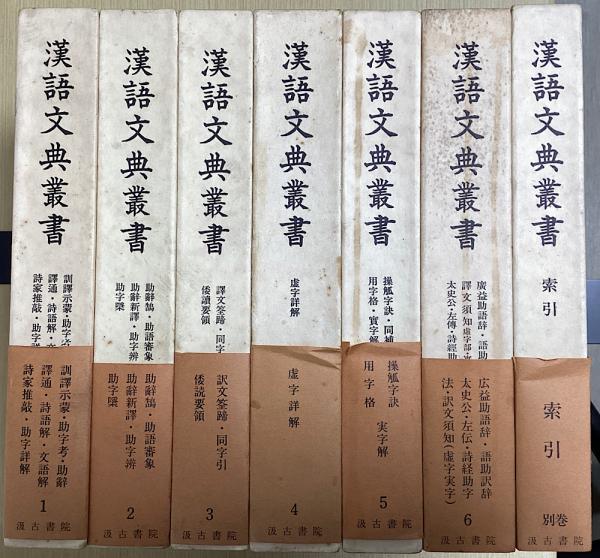 漢語文典叢書
訓譯示蒙・助字考
譯通・詩語解・文
詩家推敲・助字詳
訓譯示蒙・助字考・助辭
譯通・詩語解・文語解
詩家推敲・助字詳解
1
汲古書院
漢語文典叢書
助辭鵠・助語審象
助辭新譯・助字辨
助字櫽
助辭鵠・助語審象
助辭新譯・助字辨
助字櫽
2
汲古書院
漢語文典叢書
譯文筌蹄・同字
倭讀要領
訳文筌蹄・同字引
倭読要領
3
汲古書院
漢語文典叢書
虛字詳解
虚字詳解
4
汲古書院
漢語文典叢書
操觚字訣・同補
用字格・實字解
操觚字訣
用字格 実字解
5
汲古書院
漢語文典叢書
廣益助語辭・語助
譯文須知虛字部・
太史公・左傳・詩經助
広益助語辞・語助訳辞
太史公・左伝・詩経助字
法・訳文須知(虚字実字)
6
汲古書院
漢語文典叢書
索引
索引
別巻
汲古書院